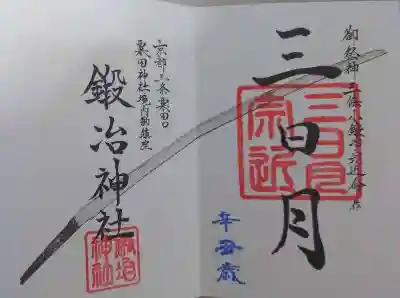 御祭神 三條小鍛冶宗近命 作
三日月
三日月
宗近
辛丑歳
京都三条粟田口
粟田神社境内勧鎮座
鍛冶神社
鍛冶
神社